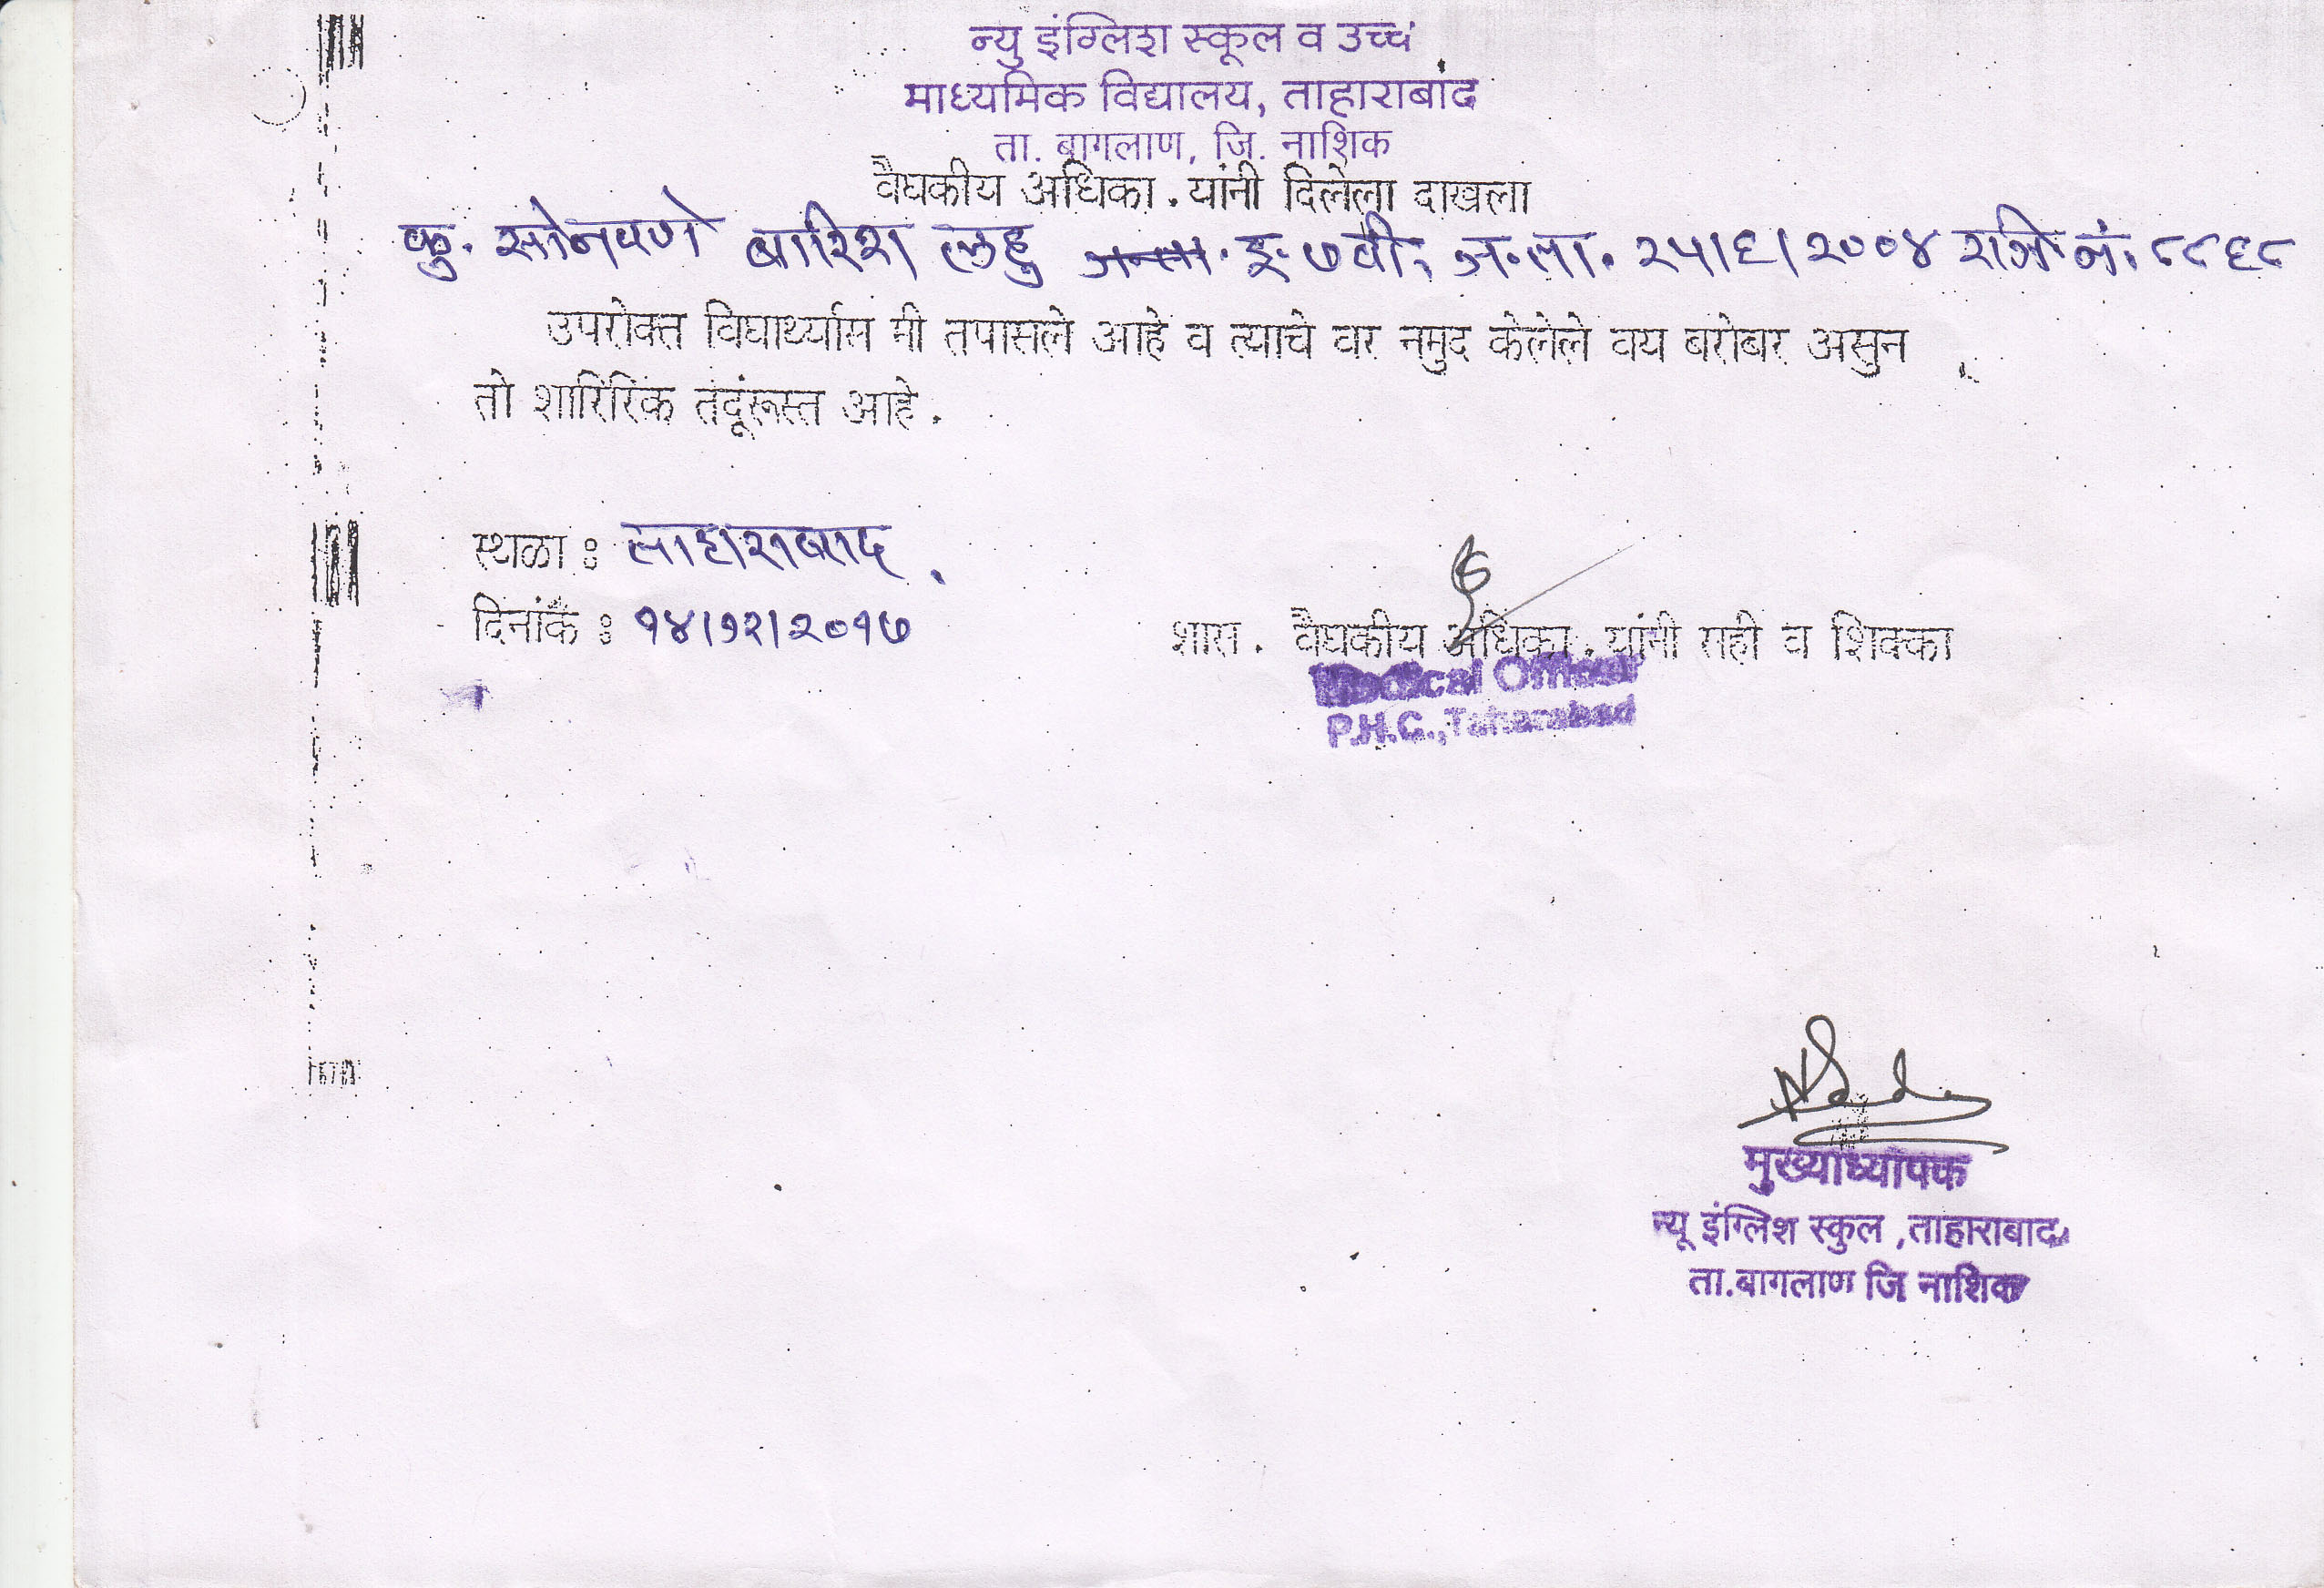 न्यु इंग्लिश स्कूल व उच्च
माध्यमिक विद्यालय, ताहाराबाद
ता. बागलाण, जि. नाशिक
वैद्यकीय अधिका. यांनी दिलेला दाखला
कु. सोनवणे बारिश लहु इ. ७ वी, ज.ता. २५/६/२००४ रजि नं. ८८६८
उपरोक्त विद्यार्थ्यास मी तपासले आहे व त्याचे वर नमुद केलेले वय बरोबर असुन
तो शारिरिक तंदूरूस्त आहे.
स्थळा : ताहाराबाद.
दिनांक : १४/१२/२०१७
शास. वैद्यकीय अधिका. यांनी सही व शिक्का
Medical Officer
P.H.C., Taharabad
मुख्याध्यापक
न्यू इंग्लिश स्कुल ,ताहाराबाद
ता.बागलाण जि नाशिक